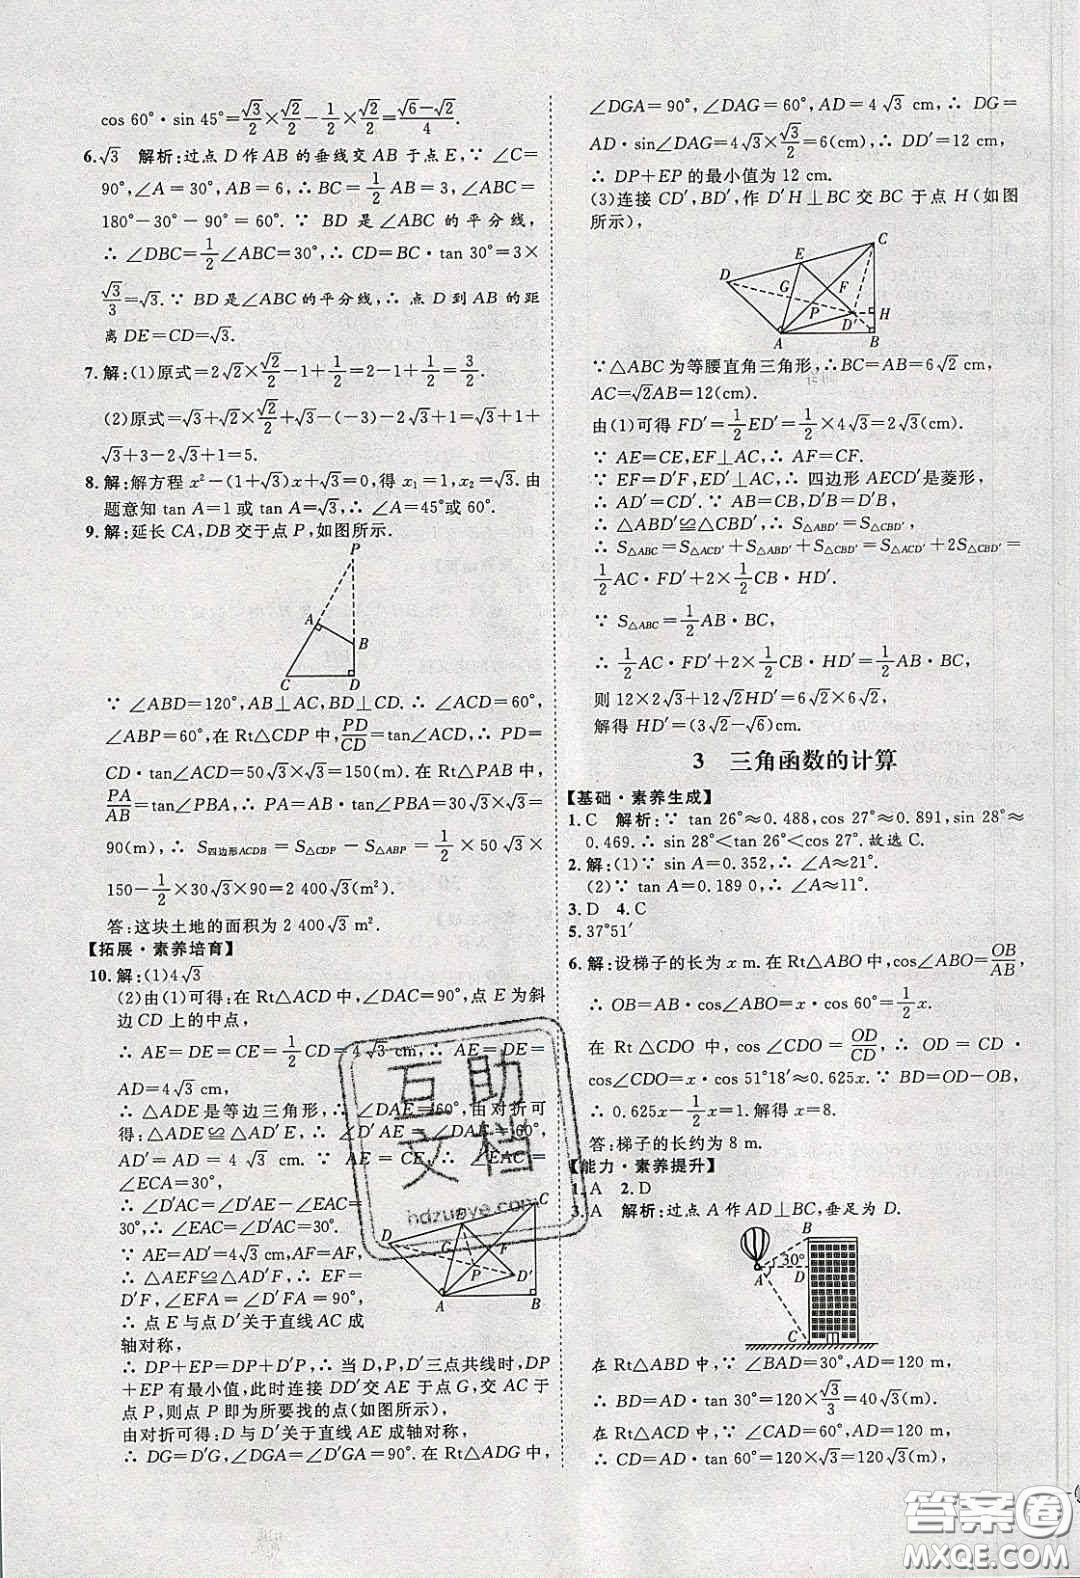 cos 60°·sin 45°=√3/2×√2/2-1/2×√2/2=(√6-√2)/4.
6.√3 解析:过点 D 作 AB 的垂线交 AB 于点 E,∵ ∠C=
90°,∠A=30°,∴ BC=1/2 AB,∠ABC=
180°-30°-90°=60°.∵ BD 是∠ABC 的平分线,
∴ ∠DBC=1/2∠ABC=30°,∴ CD=BC·tan 30°=3×
√3/3=√3.∵ BD 是∠ABC 的平分线,∴ 点 D 到 AB 的距
离 DE=CD=√3.
7.解:(1)原式=2√2×√2/2-1+1/2=2-1+1/2=3/2.
(2)原式=√3+√2×√2/2+√3-(-3)-2√3+1=√3+1+
√3+3-2√3+1=5.
8.解:解方程 x²-(1+√3)x+√3=0,得 x₁=1,x₂=√3.由
题意知 tan A=1或 tan A=√3,∴ ∠A=45°或 60°.
9.解:延长 CA,DB 交于点 P,如图所示.
P
A
B
C
D
∵ ∠ABD=120°,AB⊥AC,BD⊥CD.∴ ∠ACD=60°,
∠ABP=60°,在 Rt△CDP 中,PD/CD=tan∠ACD,∴ PD=
CD·tan∠ACD=50√3×√3=150(m).在 Rt△PAB 中,
PA/AB=tan∠PBA,∴ PA=AB·tan∠PBA=30√3×√3=
90(m),∴ S四边形ACDB=S△CDP-S△ABP=1/2×50√3×
150-1/2×30√3×90=2 400√3(m²).
答:这块土地的面积为 2 400√3 m².
【拓展·素养培育】
10.解:(1)4√3
(2)由(1)可得:在 Rt△ACD 中,∠DAC=90°,点 E 为斜
边 CD 上的中点,
∴ AE=DE=CE=1/2 CD=4√3 cm,∴ AE=DE=
AD=4√3 cm,
∴ △ADE 是等边三角形,∴ ∠DAE=60°,由对折可
得:△ADE≌△AD′E,∴ ∠DAE=∠D′AE=60°,
AD′=AD=4√3 cm.∵ AE=CE,∴ ∠EAC=
∠ECA=30°,
∴ ∠D′AC=∠D′AE-∠EAC=
30°,∴ ∠EAC=∠D′AC=30°.
∵ AE=AD′=4√3 cm,AF=AF,
∴ △AEF≌△AD′F,∴ EF=
D′F,∠EFA=∠D′FA=90°,
∴ 点 E 与点 D′关于直线 AC 成
轴对称,
D
E
C
G
F
P
D′
A
B
∴ DP+EP=DP+D′P,∴ 当 D,P,D′三点共线时,DP
+EP 有最小值,此时连接 DD′交 AE 于点 G,交 AC 于
点 P,则点 P 即为所要找的点(如图所示),
由对折可得:D 与 D′关于直线 AE 成轴对称,
∴ DG=D′G,∠DGA=∠D′GA=90°.在 Rt△ADG 中,
∠DGA=90°,∠DAG=60°,AD=4√3 cm,∴ DG=
AD·sin∠DAG=4√3×√3/2=6(cm),∴ DD′=12 cm,
∴ DP+EP 的最小值为 12 cm.
(3)连接 CD′,BD′,作 D′H⊥BC 交 BC 于点 H(如图
所示),
C
E
D
G
F
P
H
D′
A
B
∵△ABC 为等腰直角三角形,∴BC=AB=6√2 cm,
AC=√2AB=12(cm).
由(1)可得 FD′=1/2ED′=1/2×4√3=2√3(cm).
∵ AE=CE,EF⊥AC,∴ AF=CF.
∵ EF=D′F,ED′⊥AC,∴ 四边形 AECD′是菱形,
∴ AD′=CD′.∵ AB=CB,D′B=D′B,
∴ △ABD′≌△CBD′,∴ S△ABD′=S△CBD′,
∴ S△ABC=S△ACD′+S△ABD′+S△CBD′=S△ACD′+2S△CBD′=
1/2AC·FD′+2×1/2CB·HD′.
∵ S△ABC=1/2AB·BC,
∴ 1/2AC·FD′+2×1/2CB·HD′=1/2AB·BC,
则 12×2√3+12√2HD′=6√2×6√2,
解得 HD′=(3√2-√6)cm.
3 三角函数的计算
【基础·素养生成】
1.C 解析:∵ tan 26°≈0.488,cos 27°≈0.891,sin 28°≈
0.469.∴ sin 28°<tan 26°<cos 27°.故选 C.
2.解:(1)∵ sin A=0.352,∴ ∠A≈21°.
(2)∵ tan A=0.189 0,∴ ∠A≈11°.
3.D 4.C
5.37°51′
6.解:设梯子的长为 x m.在 Rt△ABO 中,cos∠ABO=OB/AB,
∴ OB=AB·cos∠ABO=x·cos 60°=1/2x.
在 Rt△CDO 中,cos∠CDO=OD/CD,∴ OD=CD·
cos∠CDO=x·cos 51°18′≈0.625x.∵ BD=OD-OB,
∴ 0.625x-1/2x=1.解得 x=8.
答:梯子的长约为 8 m.
【能力·素养提升】
1.A 2.D
3.A 解析:过点 A 作 AD⊥BC,垂足为 D.
B
30°
A
D
C
在 Rt△ABD 中,∵ ∠BAD=30°,AD=120 m,
∴ BD=AD·tan 30°=120×√3/3=40√3(m).
在 Rt△ACD 中,∵ ∠CAD=60°,AD=120 m,
∴ CD=AD·tan 60°=120×√3=120√3(m),
互助
文档
hdzuoye.com
答案圈
MXQE.COM